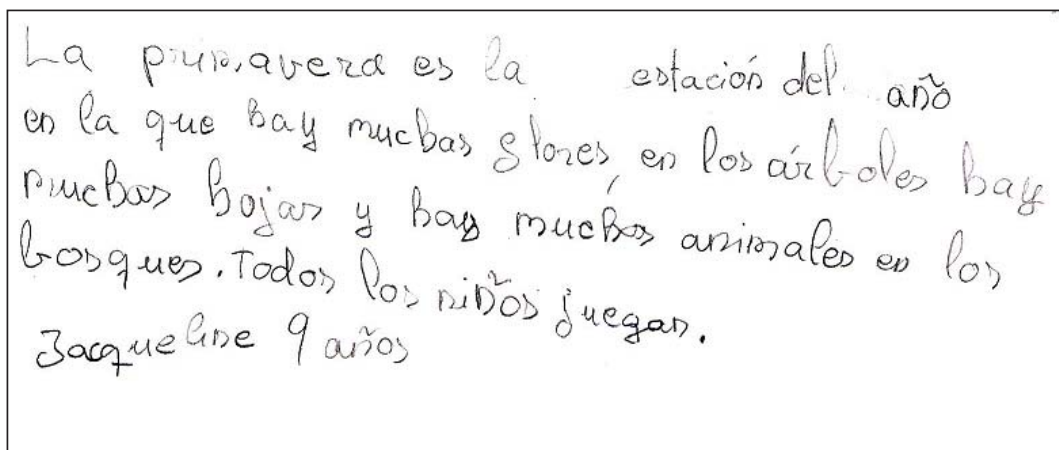 La primavera es la estación del año
en la que hay muchas flores, en los árboles hay
muchas hojas y hay muchos animales en los
bosques. Todos los niños juegan.
Jacqueline 9 años